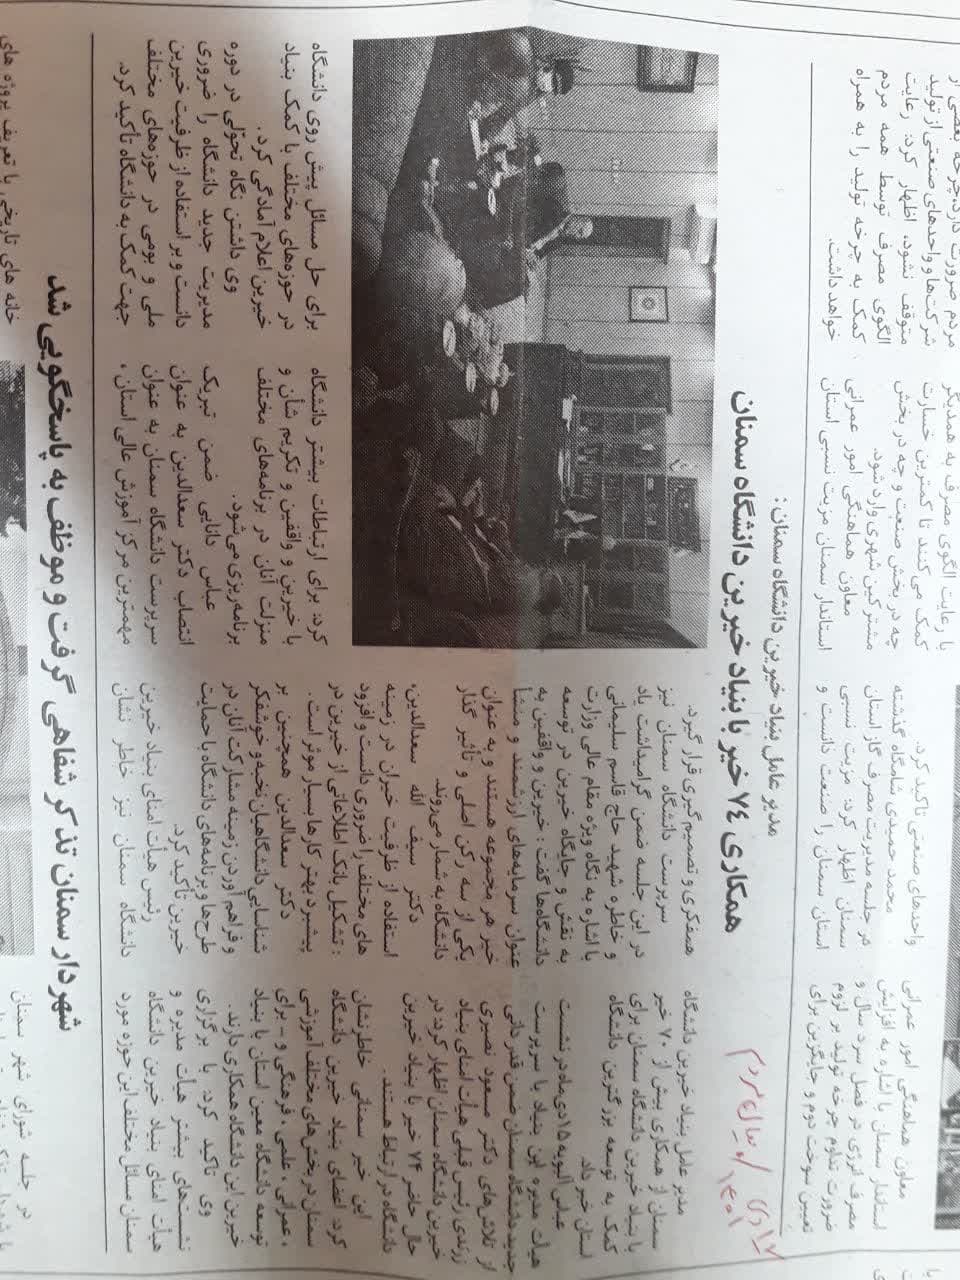 معاون هماهنگی امور عمرانی
استاندار سمنان با اشاره به افزایش
مصرف انرژی در فصل سرد سال و
ضرورت تداوم چرخه تولید بر لزوم
تعیین سوخت دوم و جایگزین برای
واحدهای صنعتی تاکید کرد.
محمد حمیدی شامگاه گذشته
در جلسه مدیریت مصرف گاز استان
سمنان اظهار کرد: مزیت نسبی
استان سمنان را صنعت دانست و
با رعایت الگوی مصرف به همدیگر
کمک می کنند تا کمترین خسارت
چه در بخش صنعت و چه در بخش
مشترکین شهری وارد شود.
معاون هماهنگی امور عمرانی
استاندار سمنان مزیت نسبی استان
مردم ضرورت دارد چرخه بعضی از
شرکت‌ها و واحدهای صنعتی از تولید
متوقف نشود، اظهار کرد: رعایت
الگوی مصرف توسط همه مردم
کمک به چرخه تولید را به همراه
خواهد داشت.
مدیر عامل بنیاد خیرین دانشگاه سمنان:
همکاری ۷۴ خیر با بنیاد خیرین دانشگاه سمنان
۱۷ دی
۱۴۰۱
مدیر عامل بنیاد خیرین دانشگاه
سمنان از همکاری بیش از ۷۰ خیر
با بنیاد خیرین دانشگاه سمنان برای
کمک به توسعه بزرگترین دانشگاه
استان خبر داد.
عباس آلبویه ۱۵ دی‌ماه در نشست
هیأت مدیره این بنیاد با سرپرست
جدید دانشگاه سمنان ضمن قدردانی
از تلاش‌های دکتر مسعود نصرتی
رئیس قبلی هیأت امنای بنیاد
خیرین دانشگاه سمنان اظهار کرد: در
حال حاضر ۷۴ خیر با بنیاد خیرین
دانشگاه در ارتباط هستند.
این خیر سمنانی خاطرنشان
کرد: اعضای بنیاد خیرین دانشگاه
سمنان در بخش‌های مختلف آموزشی
، عمرانی، علمی، فرهنگی و – برای
توسعه دانشگاه معین استان با بنیاد
خیرین این دانشگاه همکاری دارند.
وی تاکید کرد: با برگزاری
نشست‌های بیشتر هیأت مدیره و
هیأت امنای بنیاد خیرین دانشگاه
سمنان مسائل مختلف این حوزه مورد
همفکری و تصمیم‌گیری قرار گیرد.
سرپرست دانشگاه سمنان نیز
در این جلسه ضمن گرامیداشت یاد
و خاطره شهید حاج قاسم سلیمانی
با اشاره به نگاه ویژه مقام عالی وزارت
به نقش و جایگاه خیرین در توسعه
دانشگاه‌ها گفت : خیرین و واقفین به
عنوان سرمایه‌های ارزشمند و منشأ
خیر هر مجموعه هستند و به عنوان
یکی از سه رکن اصلی و تاثیر گذار
دانشگاه به شمار می‌روند.
دکتر سیف الله سعدالدین،
استفاده از ظرفیت خیران در زمینه
های مختلف را ضروری دانست و افزود
: تشکیل بانک اطلاعاتی از خیرین در
پیشبرد بهتر کارها بسیار موثر است.
دکتر سعدالدین همچنین بر
شناسایی دانشگاهیان نخبه و خوشفکر
و فراهم آوردن زمینه مشارکت آنان در
طرح‌ها و برنامه‌های دانشگاه با حمایت
خیرین تأکید کرد.
رئیس هیأت امنای بنیاد خیرین
دانشگاه سمنان نیز خاطر نشان
کرد: برای ارتباطات بیشتر دانشگاه
با خیرین و واقفین و تکریم شأن و
منزلت آنان در برنامه‌های مختلف
برنامه‌ریزی می‌شود.
عباس دانایی ضمن تبریک
انتصاب دکتر سعدالدین به عنوان
سرپرست دانشگاه سمنان به عنوان
مهمترین مرکز آموزش عالی استان،
برای حل مسائل پیش روی دانشگاه
در حوزه‌های مختلف با کمک بنیاد
خیرین اعلام آمادگی کرد.
وی داشتن نگاه تحولی در دوره
مدیریت جدید دانشگاه را ضروری
دانست و بر استفاده از ظرفیت خیرین
ملی و بومی در حوزه‌های مختلف
جهت کمک به دانشگاه تأکید کرد.
شهردار سمنان تذکر شفاهی گرفت و موظف به پاسخگویی شد
در جلسه شورای شهر سمنان
خانه های تاریخی با تعریف پروژه های